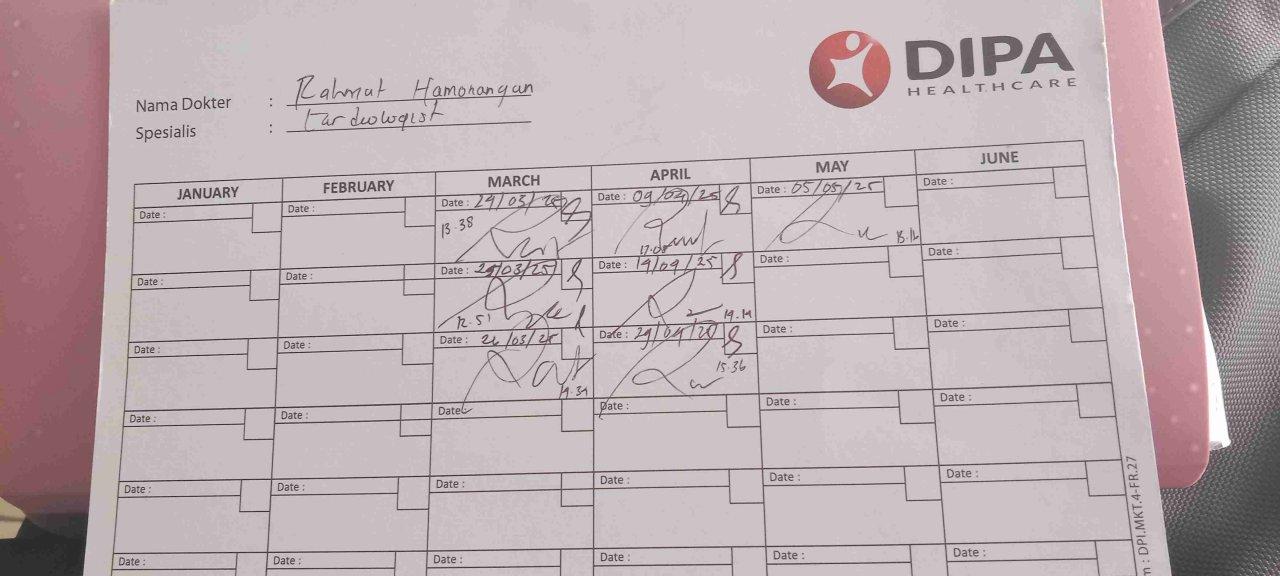 DIPA
HEALTHCARE
Nama Dokter : Rahmat Hamonangan
Spesialis : Cardiologist
JANUARY FEBRUARY MARCH APRIL MAY JUNE
Date : Date : Date : /03/25 Date : 09/04/25 Date : 05/05/25 Date :
13.38 17.08 13.16
Date : Date : Date : /03/25 Date : 19/04/25 Date : Date :
12.51 19.19
Date : Date : Date : 26/03/25 Date : 29/04/25 Date : Date :
19.39 15.36
Date : Date : Date : Date : Date : Date :
Date : Date : Date : Date : Date : Date :
Date : Date : Date : Date : Date : Date :
m : DPI.MKT.4-FR.27